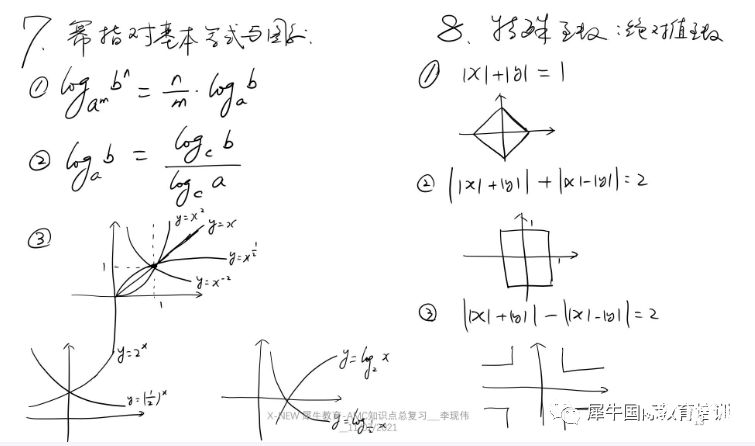 7. 幂指对基本公式与图象.
① log_{a^m} b^n = n/m · log_a b
② log_a b = log_c b / log_c a
③
y=x²
y=x
y=x^{1/2}
y=x^{-2}
1
1
y=2^x
y=(1/2)^x
y=log_2 x
y=log_{1/2} x
8. 特殊函数:绝对值函数
① |x|+|y|=1
② ||x|+|y||+||x|-|y||=2
1
1
③ ||x|+|y||-||x|-|y||=2
X-NEW 犀牛教育-AMC知识点总复习__李现伟
2021
犀牛国际教育培训